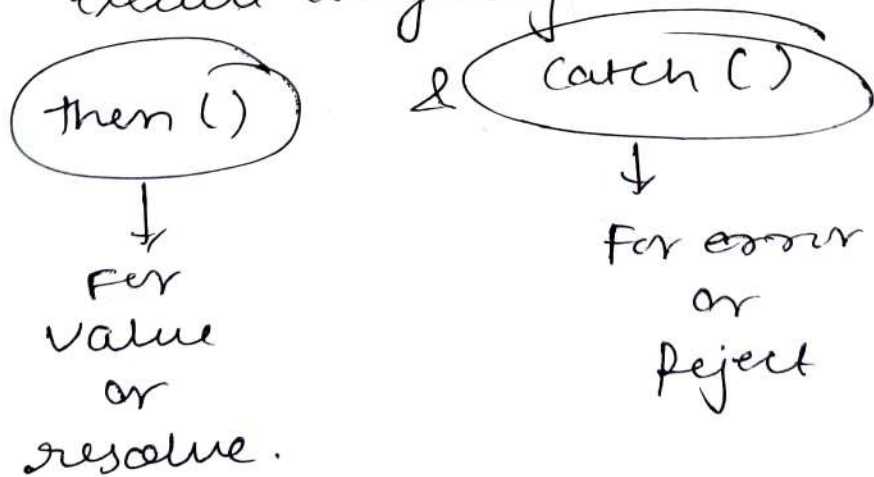 then () & catch ()
For
value
or
resolve.
For error
or
Reject